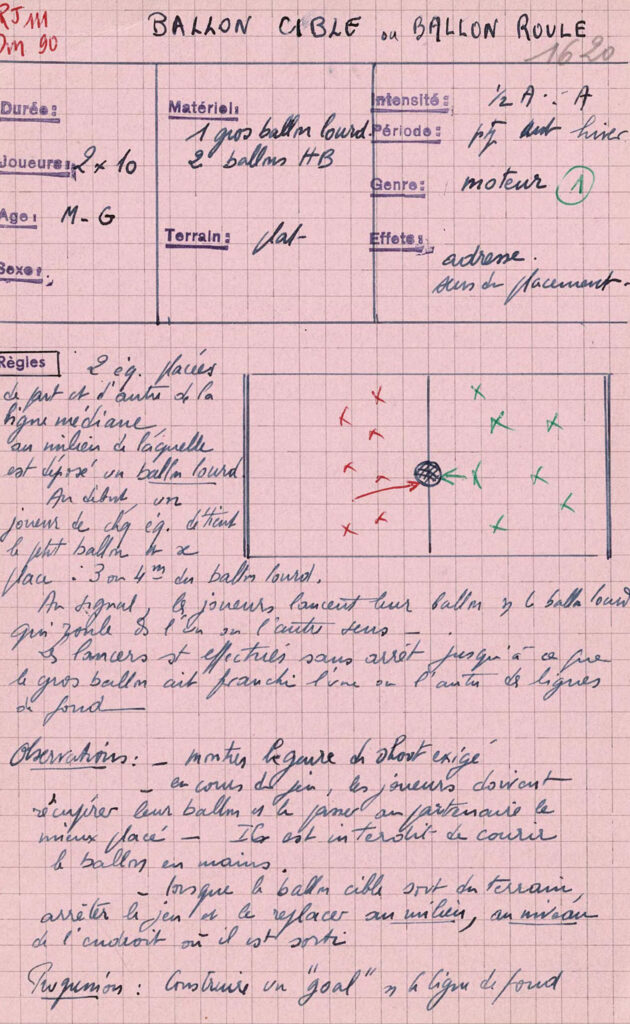 RJ 111
Dm 90
BALLON CIBLE ou BALLON ROULE
1620
Durée:
Joueurs: 2 x 10
Age: M - G
Sexe:
Matériel:
1 gros ballon lourd.
2 ballons HB
Terrain: plat
Intensité: 1/2 A A
Période: aut hiver
Genre: moteur 1
Effets: adresse.
sens du placement -
Règles 2 éq. placées
de part et d'autre de la
ligne médiane
au milieu de laquelle
est déposé un ballon lourd.
Au début, un
joueur de chq éq. détient
le ptit ballon et se
place : 3 ou 4 m du ballon lourd.
Au signal, les joueurs lancent leur ballon le ballon lourd
qui roule ds l'un ou l'autre sens -
Les lancers st effectués sans arrêt jusqu'à ce que
le gros ballon ait franchi l'une ou l'autre des lignes
de fond
Observations: - montrer le genre de shoot exigé
- en cours de jeu, les joueurs doivent
récupérer leur ballon et le passer au partenaire le
mieux placé - Il est interdit de courir
le ballon en mains.
- lorsque le ballon cible sort du terrain,
arrêter le jeu et le replacer au milieu, au niveau
de l'endroit où il est sorti
: Construire un "goal" la ligne de fond